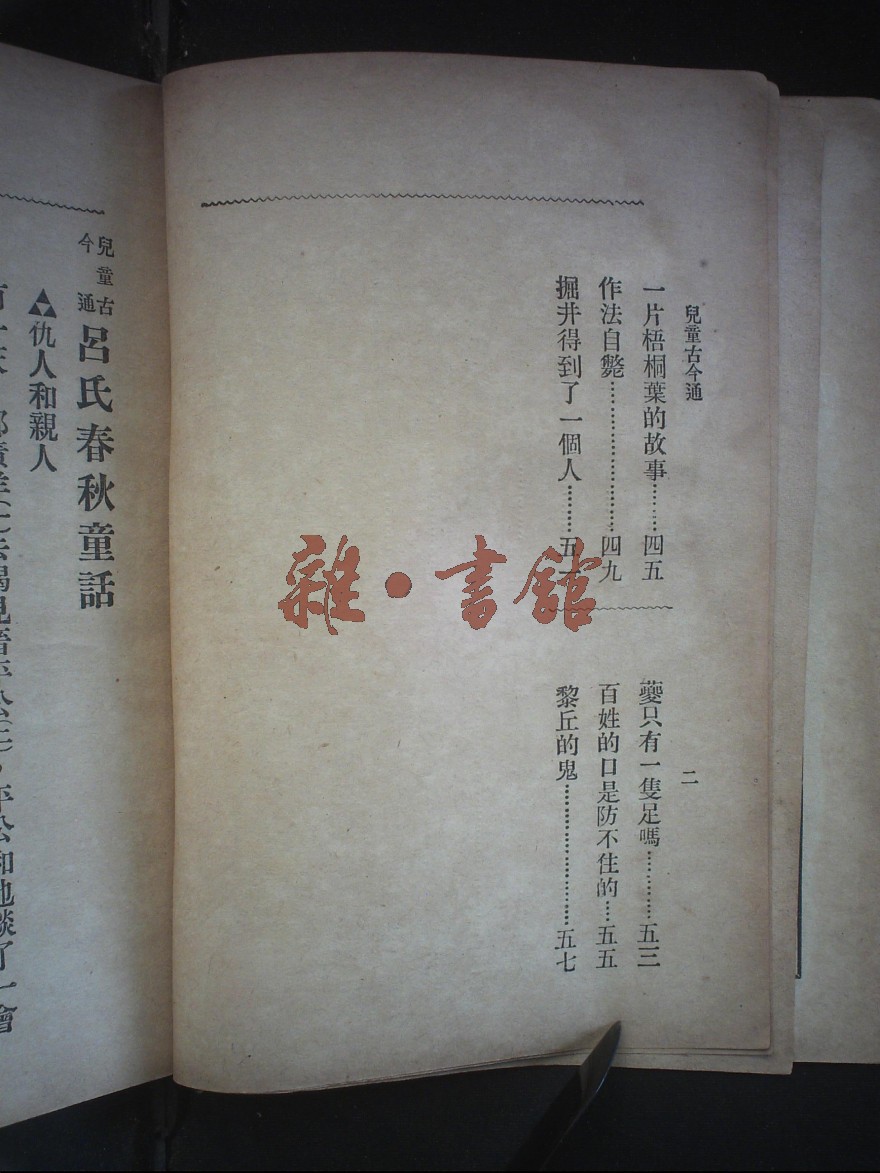 兒童古今通
二
一片梧桐葉的故事………四五
作法自斃……………………四九
掘井得到了一個人………五一
夔只有一隻足嗎…………五三
百姓的口是防不住的…五五
黎丘的鬼……………………五七
雜·書館
兒童古今通
呂氏春秋童話
仇人和親人
去謁見晉平公
平公和他談了一會